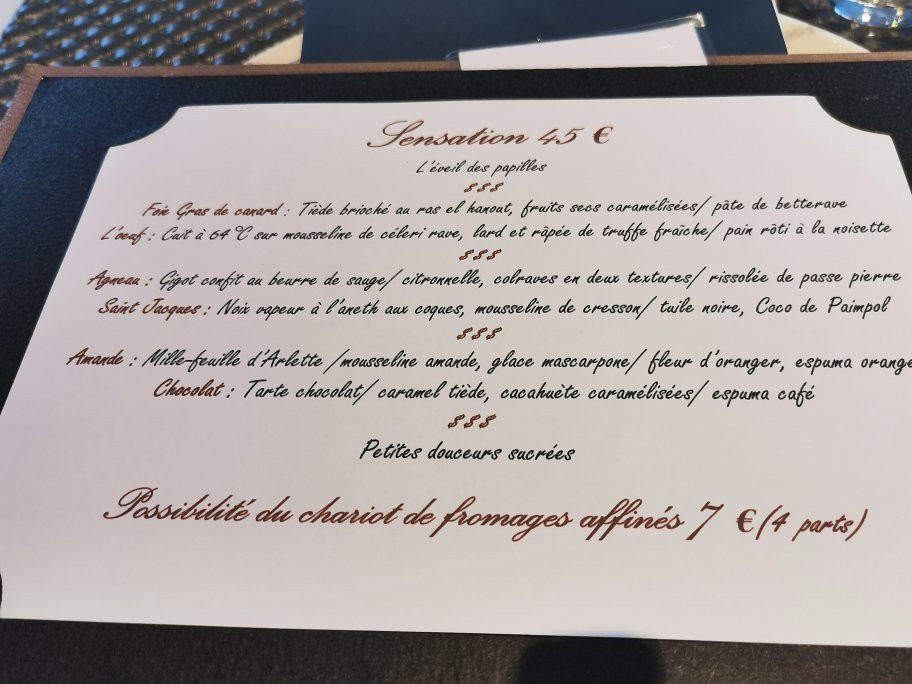 Sensation 45 €
L'éveil des papilles
$$$
Foie Gras de canard : Tiède brioché au ras el hanout, fruits secs caramélisées/ pâte de betterave
L'oeuf : Cuit à 64 °C sur mousseline de céleri rave, lard et râpée de truffe fraîche/ pain rôti à la noisette
$$$
Agneau : Gigot confit au beurre de sauge/ citronnelle, colraves en deux textures/ rissolée de passe pierre
Saint Jacques : Noix vapeur à l'aneth aux coques, mousseline de cresson/ tuile noire, Coco de Paimpol
$$$
Amande : Mille-feuille d'Arlette /mousseline amande, glace mascarpone/ fleur d'oranger, espuma orange
Chocolat : Tarte chocolat/ caramel tiède, cacahuète caramélisées/ espuma café
$$$
Petites douceurs sucrées
Possibilité du chariot de fromages affinés 7 € (4 parts)